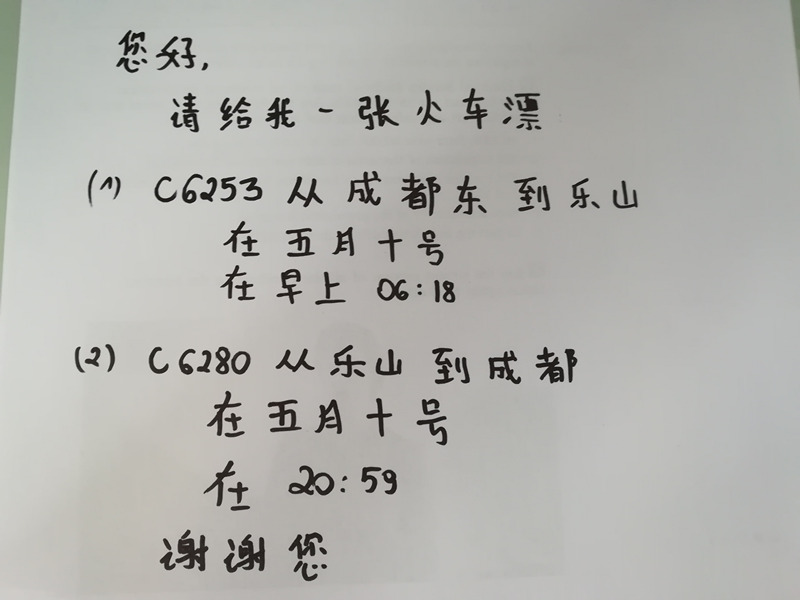 您好,
请给我一张火车漂
(1) C6253 从成都东到乐山
在五月十号
在早上 06:18
(2) C6280 从乐山到成都
在五月十号
在 20:59
谢谢您